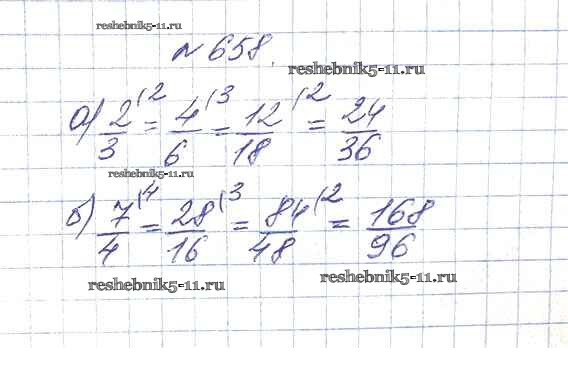 reshebnik5-11.ru
№658.
reshebnik5-11.ru
а) 2/3 (2 = 4/6 (3 = 12/18 (2 = 24/36
reshebnik5-11.ru
б) 7/4 (4 = 28/16 (3 = 84/48 (2 = 168/96
reshebnik5-11.ru reshebnik5-11.ru